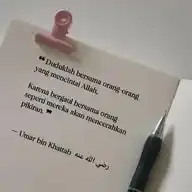 ❝ Duduklah bersama orang-orang
yang mencintai Allah.
Karena bergaul bersama orang
seperti mereka akan mencerahkan
pikiran. ❞
— Umar bin Khattab رضي الله عنه